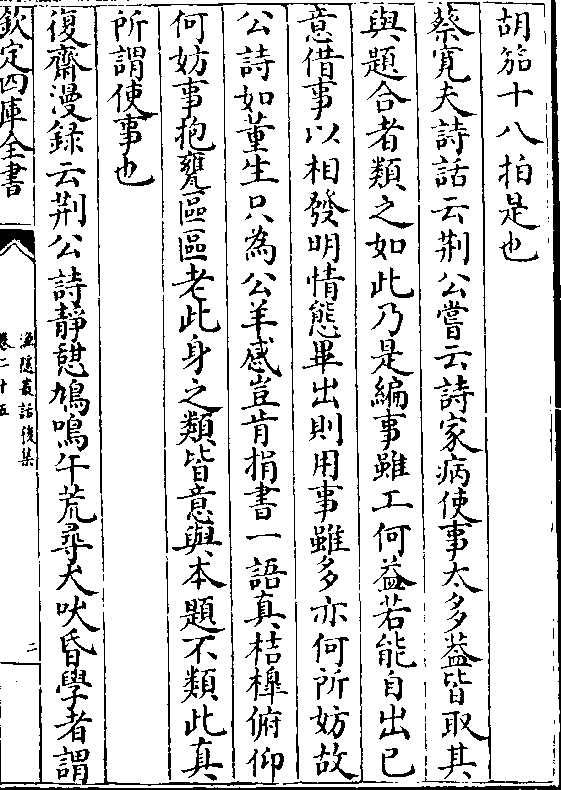 胡笳十八拍是也
蔡寛夫詩話云荆公嘗云詩家病使事太多葢皆取其
與題合者類之如此乃是編事雖工何益若能自出已
意借事以相發明情態畢出則用事雖多亦何所妨故
公詩如董生只為公羊感豈肯捐書一語真桔橰俯仰
何妨事抱甕區區老此身之類皆意與本題不類此真
所謂使事也
復齋漫錄云荆公詩靜憇鳩鳴午荒尋犬吠昏學者謂
欽定四庫全書
漁隱叢話後集
卷二十五
二